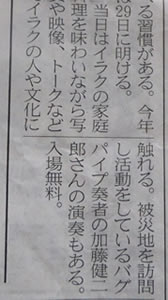 る習慣がある。今年
は29日に明ける。
当日はイラクの家庭
理を味わいながら写
や映像、トークなど
イラクの人や文化に
触れる。被災地を訪問
し活動をしているバグ
パイプ奏者の加藤健二
郎さんの演奏もある。
入場無料。